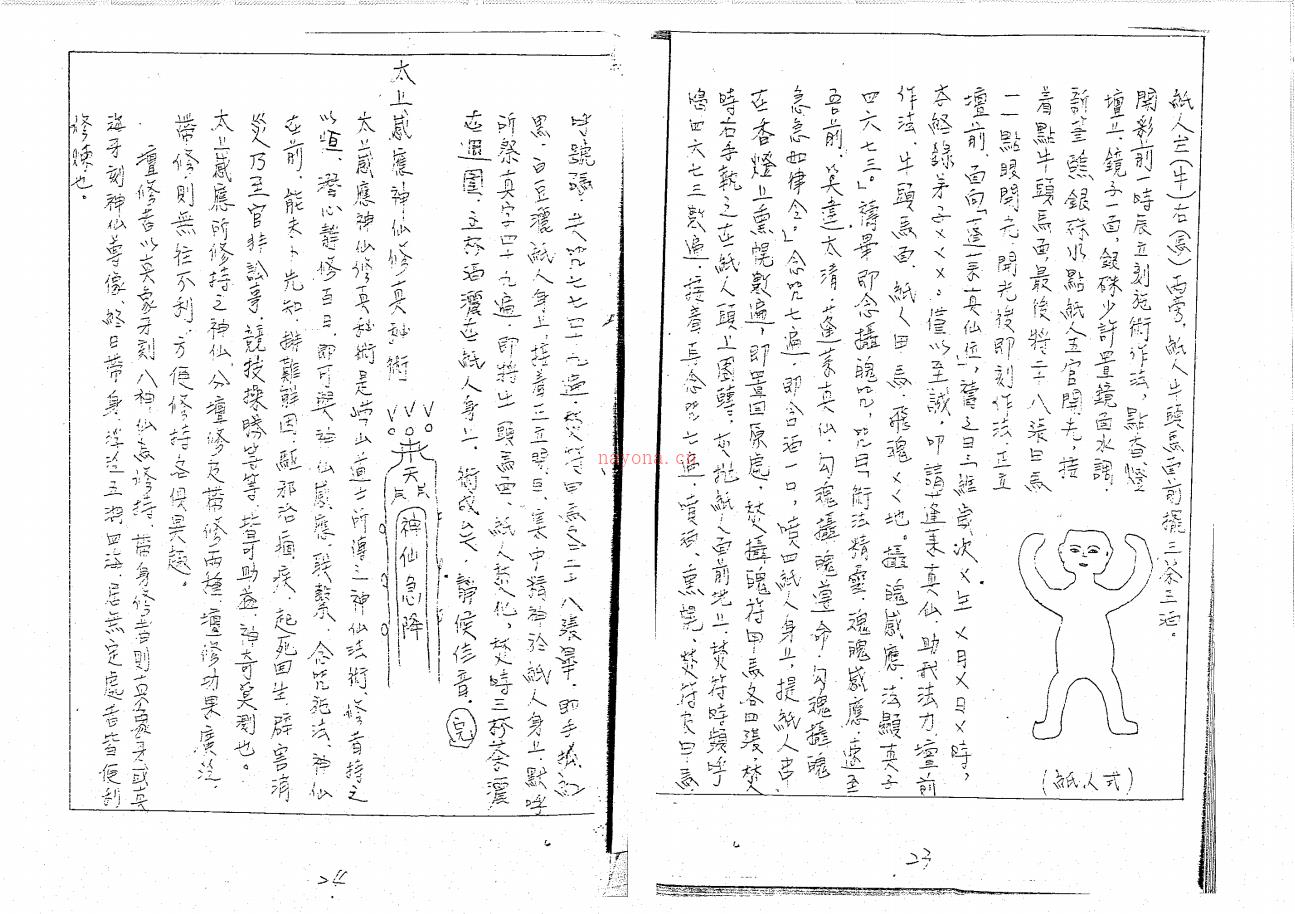 紙人左(牛)右(馬)兩旁,紙人牛頭馬面前擺三茶三酒。
開彩前一時辰立刻施術作法,點香燈
壇上,鏡子一面,銀硃少許置鏡面水調,
新筆醮銀硃水點紙人五官開光,接
着點牛頭馬面最後將二十八張甲馬
一一點眼開光,開光後即刻作法,立立
壇前,面向「蓬萊真仙位」,奮之曰:「維歲次×年×月×日×時,
弟子×××,僅以至誠,叩請蓬萊真仙,助我法力,壇前
作法,牛頭馬面,紙人甲馬,飛魂××地。攝魄感應,法顯弟子
四六七三。」禱畢即念攝魄咒,咒曰「術法精靈,魂魄感應,速至
吾前,莫違太清,蓬萊真仙,勾魂攝魄遵命,勾魂攝魄
急急如律令。」念咒七遍,即含酒一口,噴四紙人身上,提紙人串
在香燈上熏幌數遍,即置回原處,焚攝魄符甲馬各四張,焚
時右手執之在紙人頭上圈轉,灰拋紙人面前地上,焚符時頻呼
四六七三數遍,接着再念咒七遍,賣酒,熏幌,焚符灰甲馬
呼號碼,共咒七七四十九遍,焚符甲馬二十八張畢,即手抓紅
黑,白豆灑紙人身上,接着三立閉目,集中精神於紙人身上,默呼
所祭真字四十九遍,即將牛頭馬面,紙人焚化,焚時三杯茶灑
在週圍,三杯酒灑在紙人身上,術成矣,靜候佳音。完
太上感應神仙修真秘術
神仙急降
太上感應神仙修真秘術是茅山道士所傳之神仙法術,修者持之
以恒,潛心靜修百日,即可與神仙感應,聯繫,念咒施法,神仙
在前,能未卜先知,排難解困,驅邪治痼疾,起死回生,辟害消
災乃至官非訟事,競技操勝等等,皆可助益,神奇莫測也。
太上感應所修持之神仙,分壇修及帶修兩種,壇修功果廣泛,
帶修則無往不利,方便修持各俱異趣。
壇修者以真象牙刻八神仙為修持,帶身修者則真象牙或真
海牙刻神仙尊像,終日帶身,浮泛五湖四海居無定處者皆便利
修煉也。
(紙人式)
23
24
nayona.cn